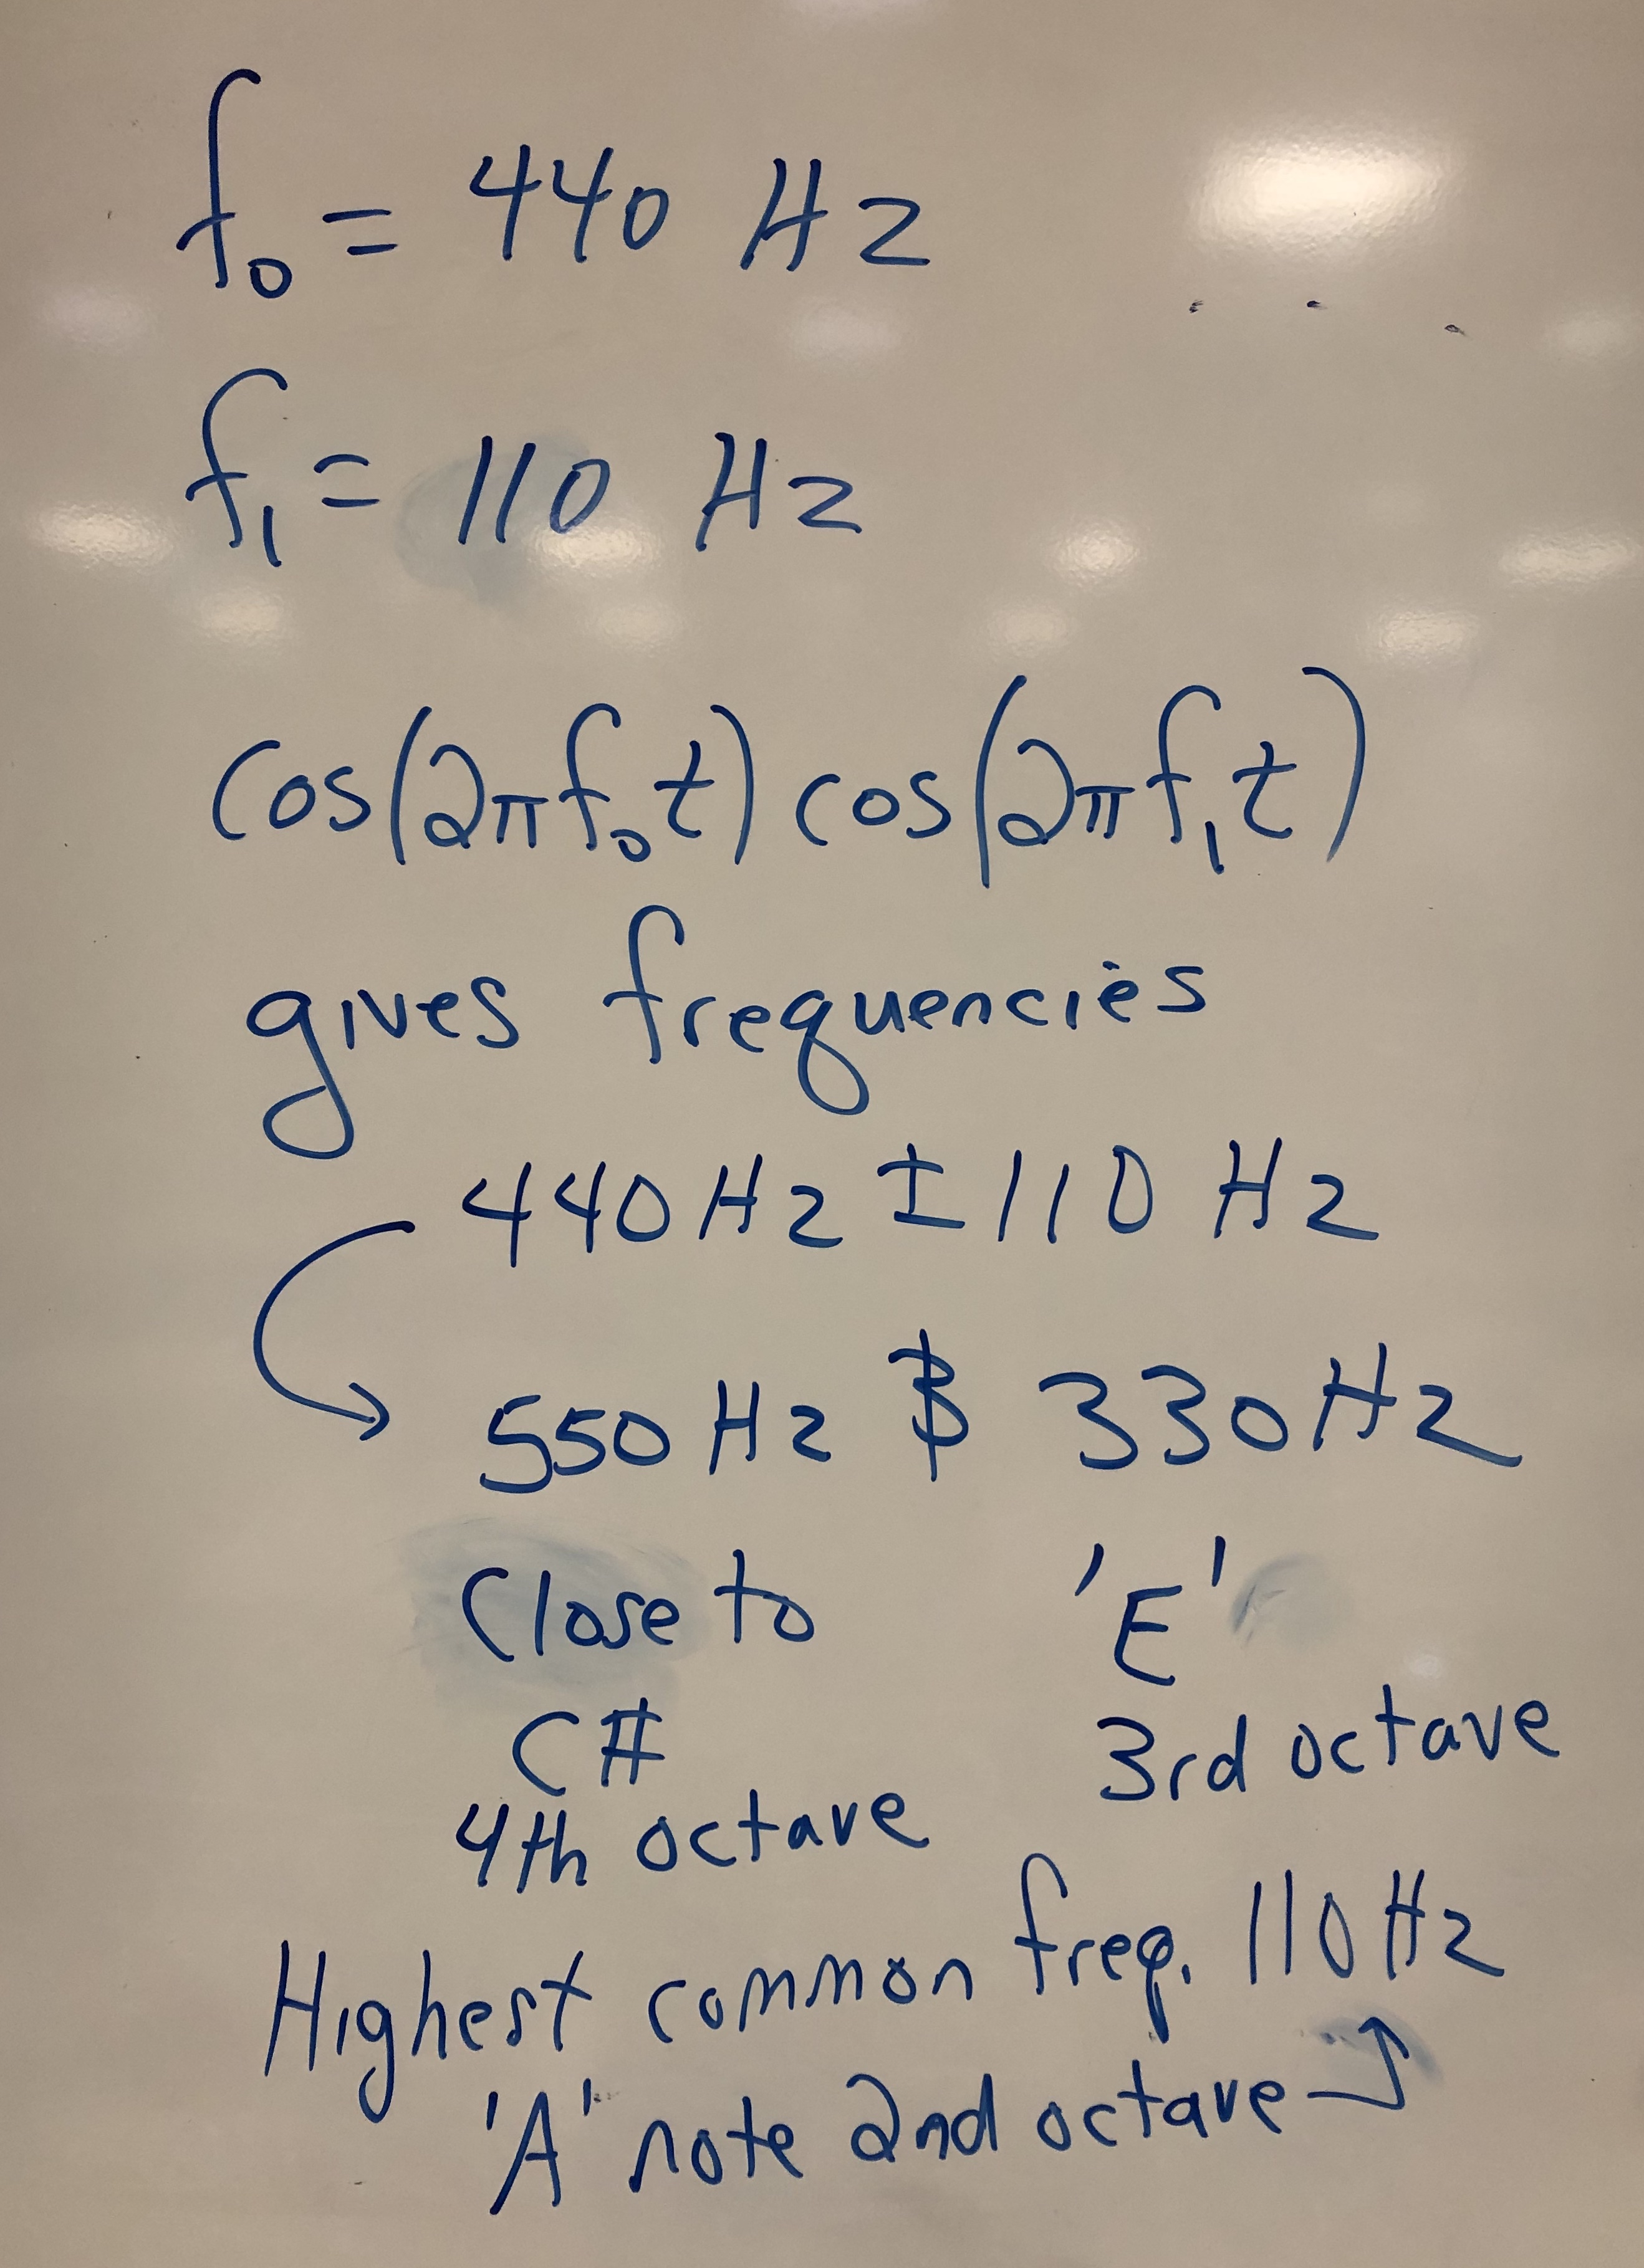 f₀ = 440 Hz
f₁ = 110 Hz
cos(2πf₀t) cos(2πf₁t)
gives frequencies
440 Hz ± 110 Hz
550 Hz & 330 Hz
Close to 'E'
C# 3rd octave
4th octave
Highest common freq. 110 Hz
'A' note 2nd octave